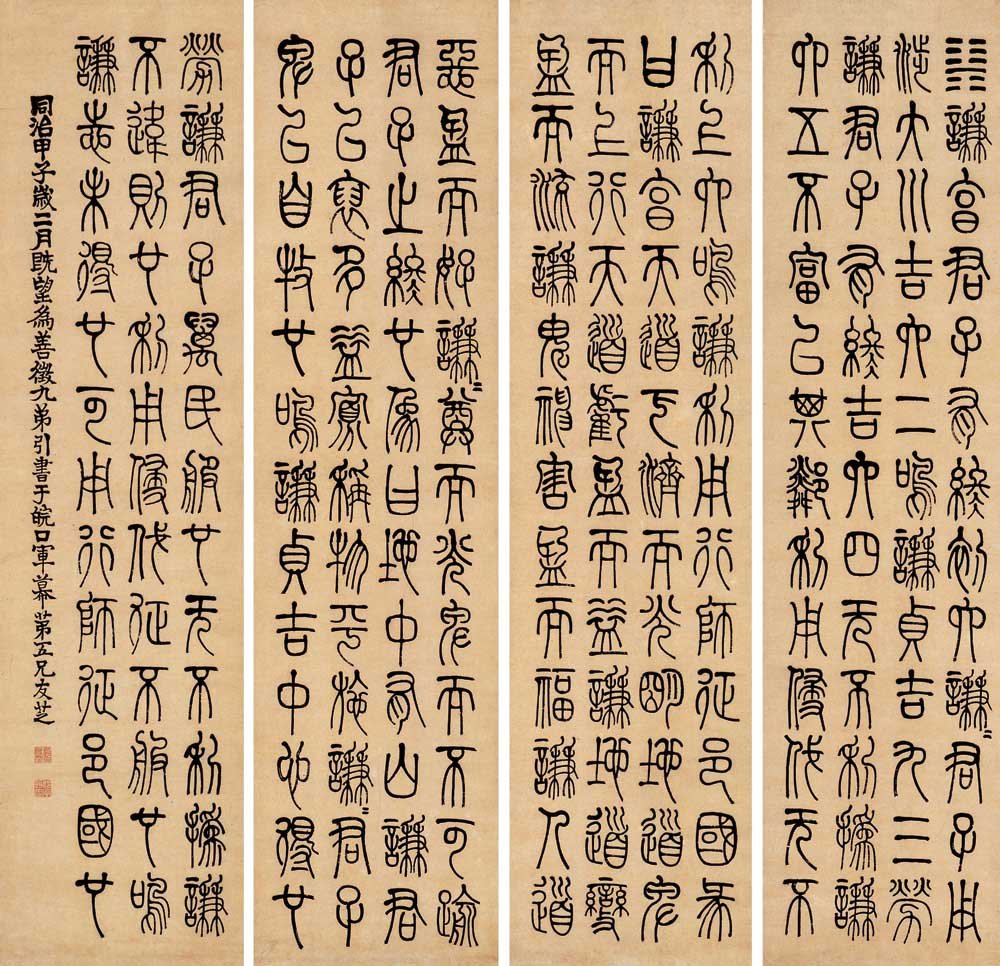 ䷎謙亯君子有終初六謙〻君子用
涉大川吉六二鳴謙貞吉九三勞
謙君子有終吉六四无不利撝謙
六五不富以其鄰利用侵伐无不
利上六鳴謙利用行師征邑國彖
曰謙亯天道下濟而光明地道卑
而上行天道虧盈而益謙地道變
盈而流謙鬼神害盈而福謙人道
惡盈而好謙〻尊而光卑而不可踰
君子之終也象曰地中有山謙君
子以裒多益寡稱物平施謙〻君子
卑以自牧也鳴謙貞吉中心得也
勞謙君子萬民服也无不利撝謙
不違則也利用侵伐征不服也鳴
謙志未得也可用行師征邑國也
同治甲子歲二月既望為善徵九弟引書于皖口軍幕第五兄友芝